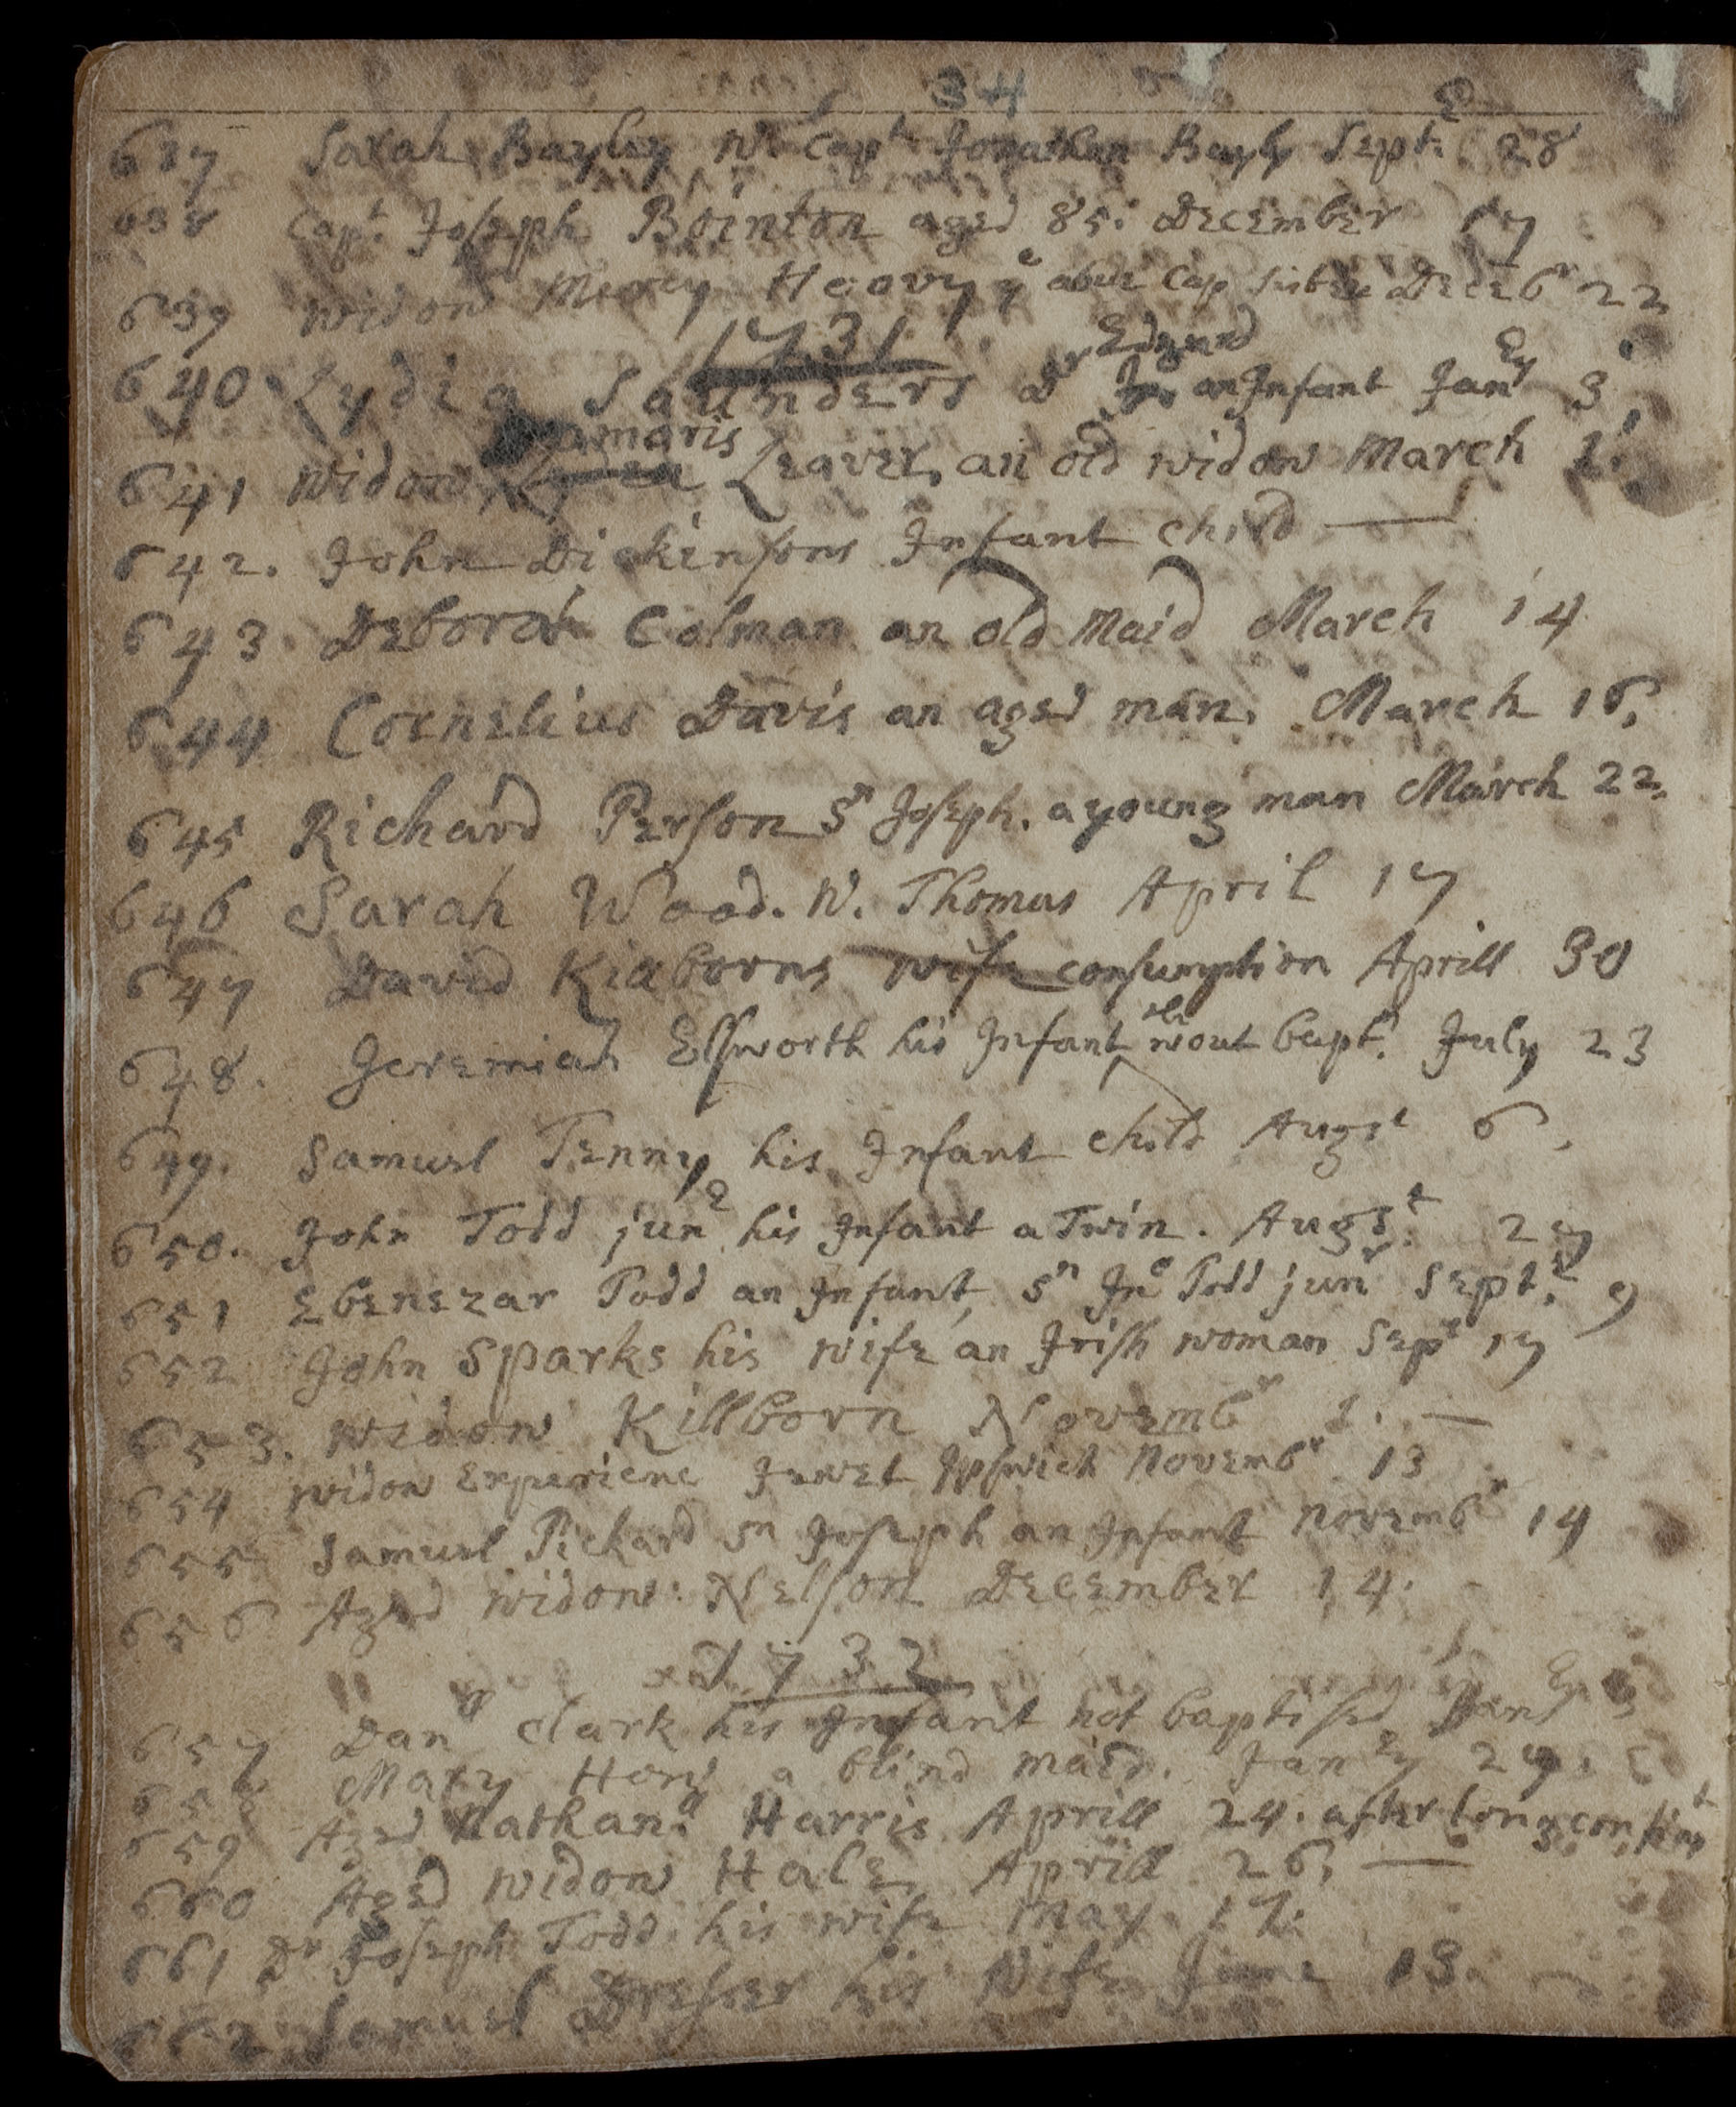 34
637 Sarah Bayley W. Capt Jonathan Bayly Septr. 28
638 Capt. Joseph Bointon aged 85. December 17
639 widow Mercy ye above Cap Decebr 22
1731
Edmund
640 Lydia Saunders Dr an Infant Janry 3
Damaris
641 widow Leaver, an old widow March 1.
642. John Dickinsons Infant child —
643. Deborah Colman an old Maid March 14
644 Cornelius Davis an aged man. March 16,
645 Richard Person Sn Joseph. a young man March 22.
646 Sarah Wood. W. Thomas April 17
647 David Kilborns wife consumption Aprill 30
648. Jeremiah Elsworth his Infant child wout bapt. July 23
649. Samuel Tenny his Infant child Augst 6.
650. John Todd junr his Infant a Twin. Augst. 27
651 Ebenezar Todd an Infant, Sn Jno Todd junr Septr. 9
652 John Sparks his wife an Irish woman Sept 17
653. widow Killborn Novembr 1. —
654 widow Experienc Jewet Ipswich Novembr 13
655 Samuel Pickard Sn Joseph an Infant Novembr 14
656 Aged widow Nelson December 14.
1732
657 Danll Clark his Infant not baptised Janry 3
658 Mary How a blind maid. Janry 29.
659 Aged Nathanll Harris Aprill 24. after long
660 Aged widow Hale Aprill 26, —
661 Dr Joseph Todd his wife May 17.
662 Samuel Dresser his Wife June 13.